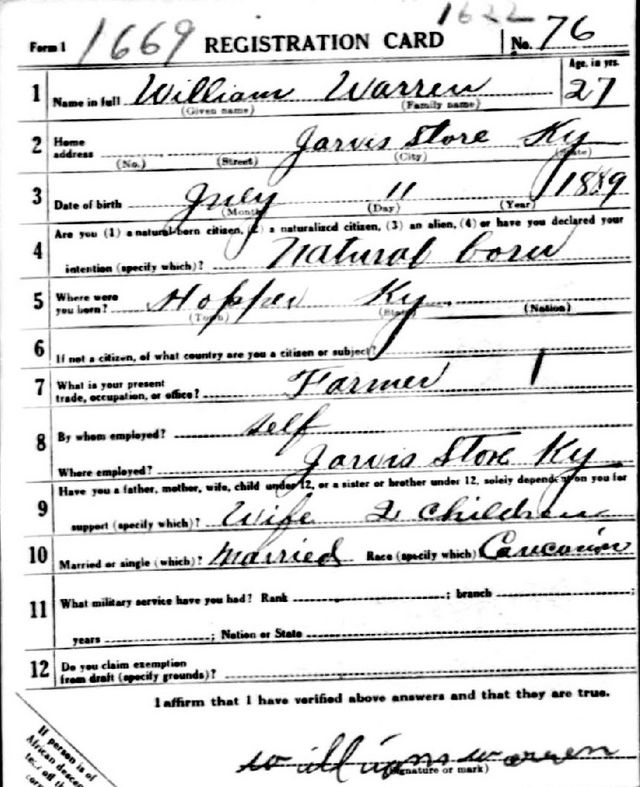 1622
Form 1 1669 REGISTRATION CARD No. 76
1 Name in full William Warren Age, in yrs. 27
(Given name) (Family name)
2 Home address Jarvis Store Ky
(No.) (Street) (City) (State)
3 Date of birth July 11 1889
(Month) (Day) (Year)
4 Are you (1) a natural-born citizen, (2) a naturalized citizen, (3) an alien, (4) or have you declared your
intention (specify which)? Natural born
5 Where were you born? Hopper Ky.
(Town) (State) (Nation)
6 If not a citizen, of what country are you a citizen or subject?
7 What is your present trade, occupation, or office? Farmer
8 By whom employed? self
Where employed? Jarvis Store Ky
9 Have you a father, mother, wife, child under 12, or a sister or brother under 12, solely dependent on you for
support (specify which)? Wife 2 children
10 Married or single (which)? Married Race (specify which) Caucasion
11 What military service have you had? Rank ; branch ;
years ; Nation or State
12 Do you claim exemption from draft (specify grounds)?
I affirm that I have verified above answers and that they are true.
William Warren
(Signature or mark)
If person is of
African desce
off th